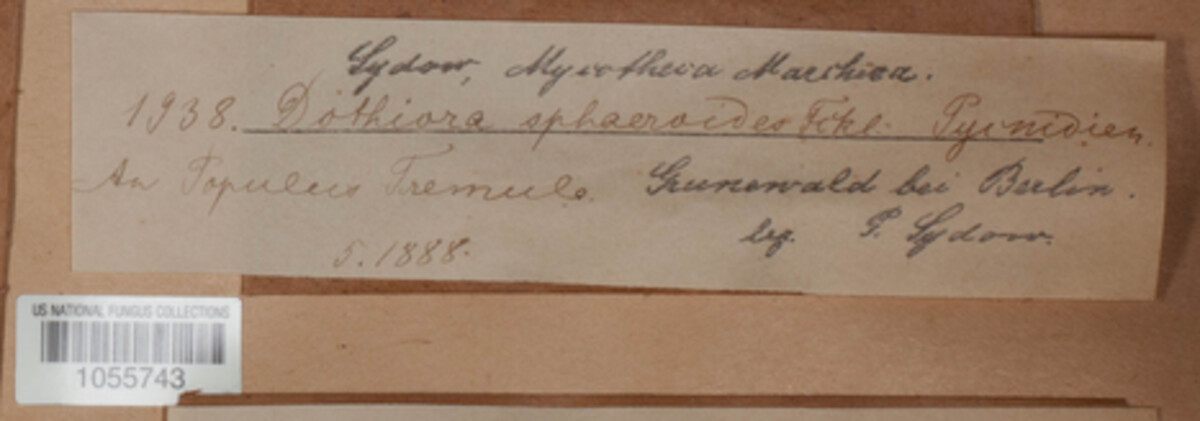 Sydow, Mycotheca Marchica.
1938. Dothiora sphaeroides Fckl. Pycnidien.
An Populus Tremula. Grunewald bei Berlin.
5.1888. leg. P. Sydow.
US NATIONAL FUNGUS COLLECTIONS
1055743